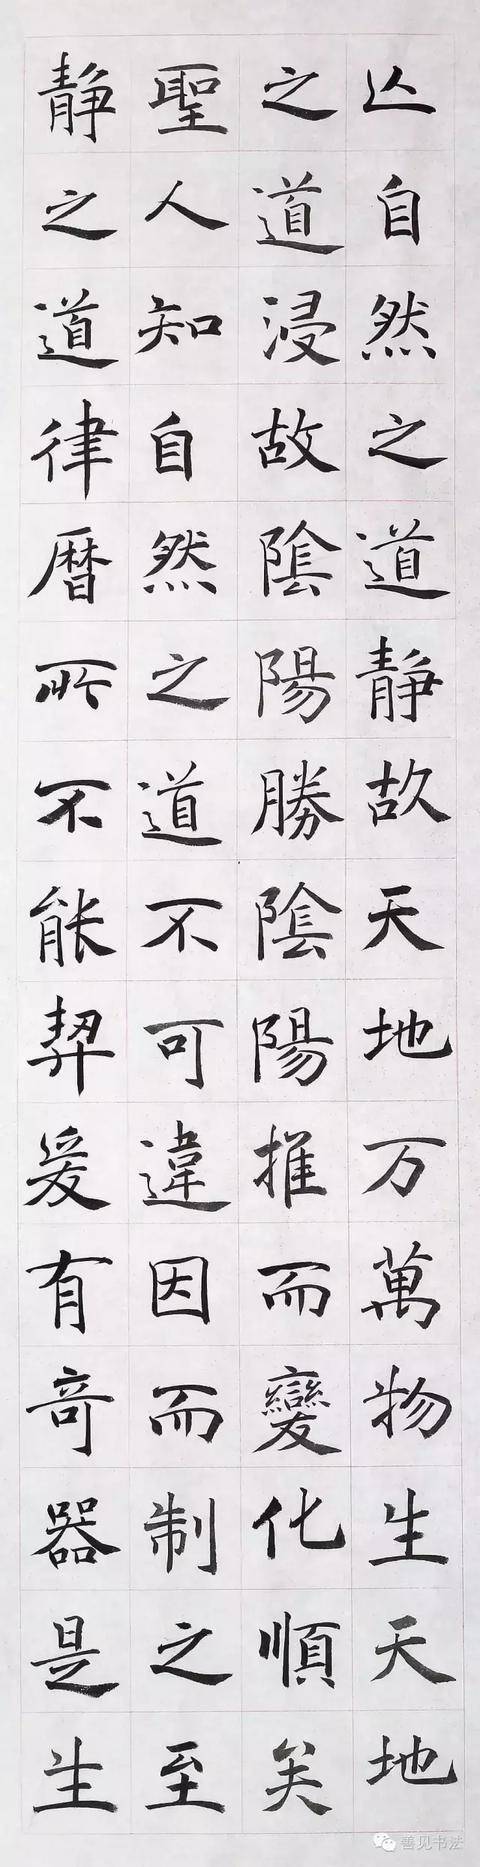 亾自然之道静故天地万萬物生天地
之道浸故陰陽勝陰陽推而變化順矣
聖人知自然之道不可違因而制之至
静之道律暦所不能契爰有奇器是生
善见书法